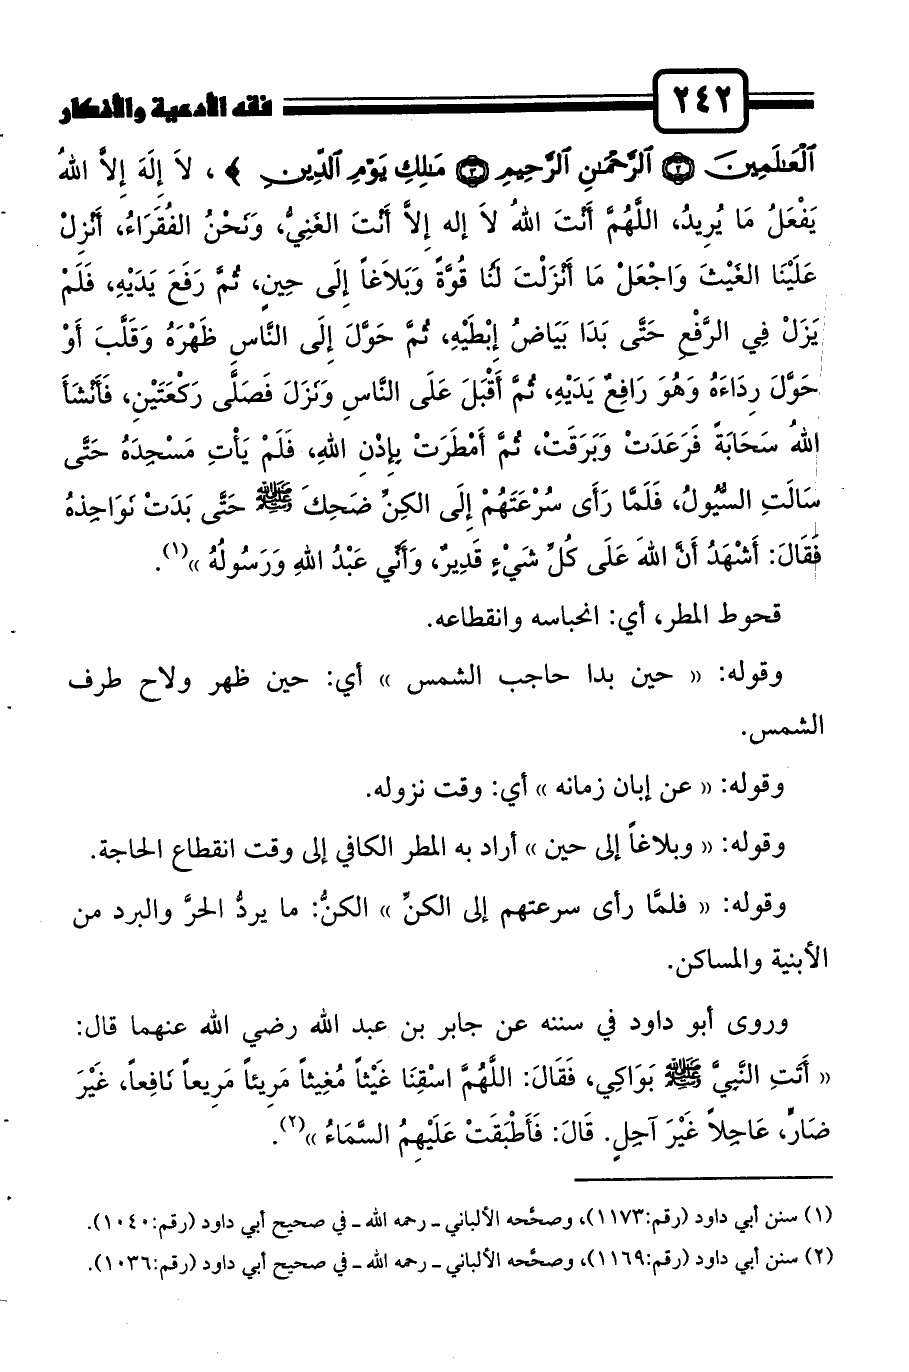 ٢٤٢ فقه الأدعية والأذكار
ٱلْعَـٰلَمِينَ ۝٢ ٱلرَّحْمَـٰنِ ٱلرَّحِيمِ ۝٣ مَـٰلِكِ يَوْمِ ٱلدِّينِ ﴾ ، لاَ إِلَهَ إِلاَّ اللهُ
يَفْعَلُ مَا يُرِيدُ، اللَّهُمَّ أَنْتَ اللهُ لاَ إله إِلاَّ أَنْتَ الغَنِيُّ، وَنَحْنُ الفُقَرَاءُ، أَنْزِلْ
عَلَيْنَا الغَيْثَ وَاجْعَلْ مَا أَنْزَلْتَ لَنَا قُوَّةً وَبَلاَغاً إِلَى حِينٍ، ثُمَّ رَفَعَ يَدَيْهِ، فَلَمْ
يَزَلْ فِي الرَّفْعِ حَتَّى بَدَا بَيَاضُ إِبْطَيْهِ، ثُمَّ حَوَّلَ إِلَى النَّاسِ ظَهْرَهُ وَقَلَّبَ أَوْ
حَوَّلَ رِدَاءَهُ وَهُوَ رَافِعٌ يَدَيْهِ، ثُمَّ أَقْبَلَ عَلَى النَّاسِ وَنَزَلَ فَصَلَّى رَكْعَتَيْنِ، فَأَنْشَأَ
اللهُ سَحَابَةً فَرَعَدَتْ وَبَرَقَتْ، ثُمَّ أَمْطَرَتْ بِإِذْنِ اللهِ، فَلَمْ يَأْتِ مَسْجِدَهُ حَتَّى
سَالَتِ السُّيُولُ، فَلَمَّا رَأَى سُرْعَتَهُمْ إِلَى الكِنِّ ضَحِكَ ﷺ حَتَّى بَدَتْ نَوَاجِذهُ
فَقَالَ: أَشْهَدُ أَنَّ اللهَ عَلَى كُلِّ شَيْءٍ قَدِيرٌ، وَأَنِّي عَبْدُ اللهِ وَرَسُولُهُ »(١).
قحوط المطر، أي: انحباسه وانقطاعه.
وقوله: « حين بدا حاجب الشمس » أي: حين ظهر ولاح طرف
الشمس.
وقوله: « عن إبان زمانه » أي: وقت نزوله.
وقوله: « وبلاغاً إلى حين » أراد به المطر الكافي إلى وقت انقطاع الحاجة.
وقوله: « فلمَّا رأى سرعتهم إلى الكنِّ » الكنُّ: ما يردُّ الحرَّ والبرد من
الأبنية والمساكن.
وروى أبو داود في سننه عن جابر بن عبد الله رضي الله عنهما قال:
« أَتَتِ النَّبِيَّ ﷺ بَوَاكِي، فَقَالَ: اللَّهُمَّ اسْقِنَا غَيْثاً مُغِيثاً مَرِيئاً مَرِيعاً نَافِعاً، غَيْرَ
ضَارٍّ، عَاجِلاً غَيْرَ آجِلٍ. قَالَ: فَأَطْبَقَتْ عَلَيْهِمُ السَّمَاءُ »(٢).
(١) سنن أبي داود (رقم:١١٧٣)، وصحَّحه الألباني ـ رحمه الله ـ في صحيح أبي داود (رقم:١٠٤٠).
(٢) سنن أبي داود (رقم:١١٦٩)، وصحَّحه الألباني ـ رحمه الله ـ في صحيح أبي داود (رقم:١٠٣٦).